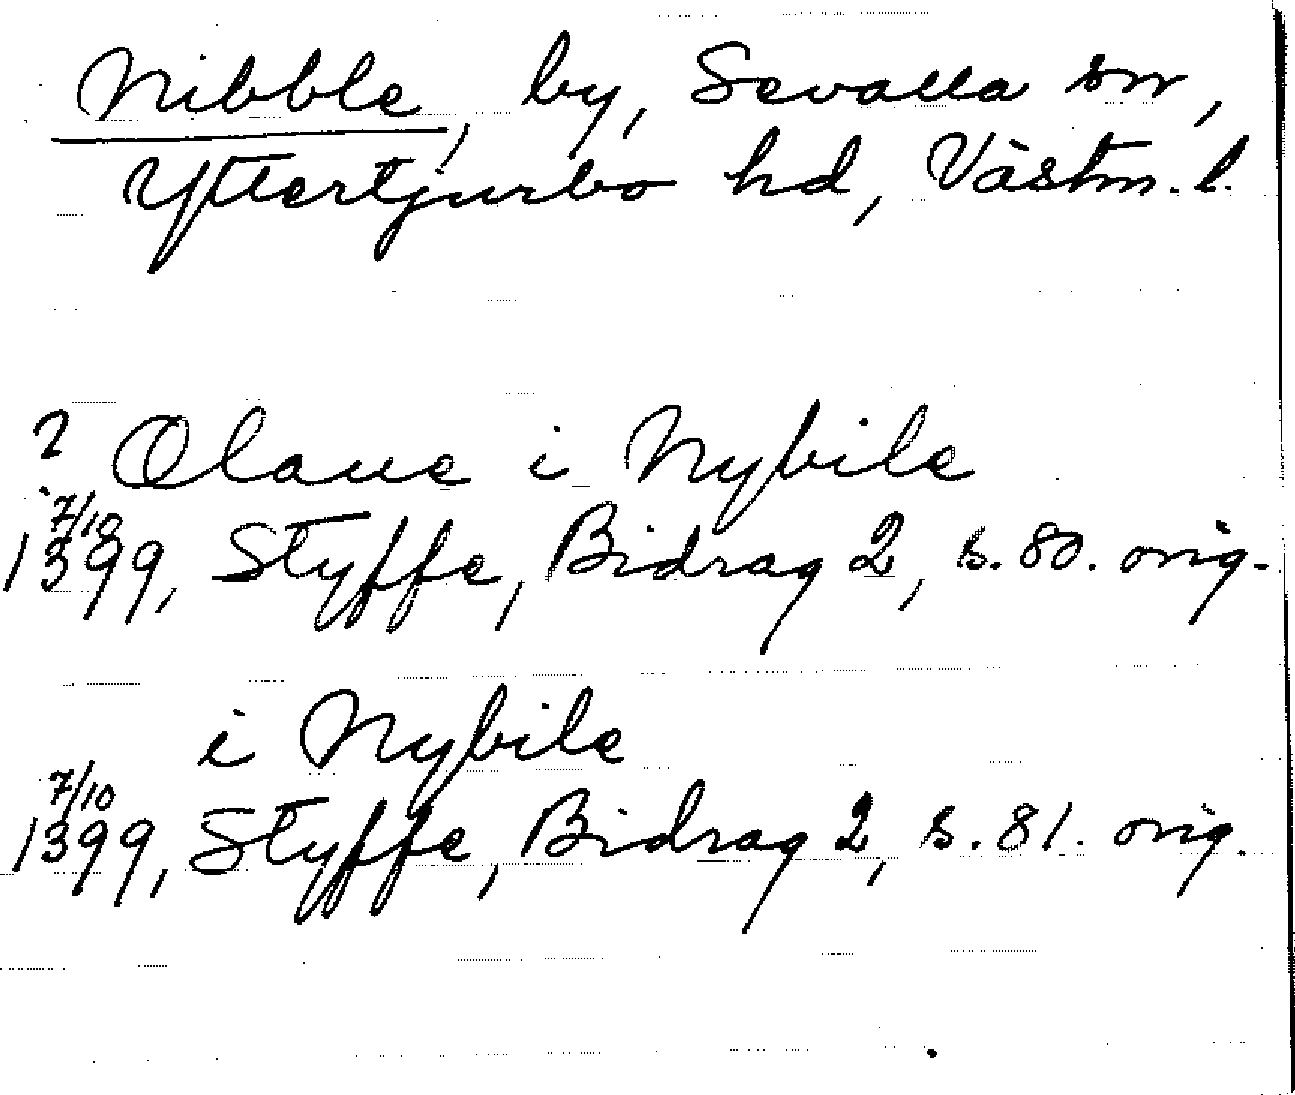 Nibble, by, Sevalla sn,
Yttertjurbo hd, Västm. l.
2 Olaue i Nybile
7/10
1399, Styffe, Bidrag 2, s. 80. orig.
i Nybile
7/10
1399, Styffe, Bidrag 2, s. 81. orig.